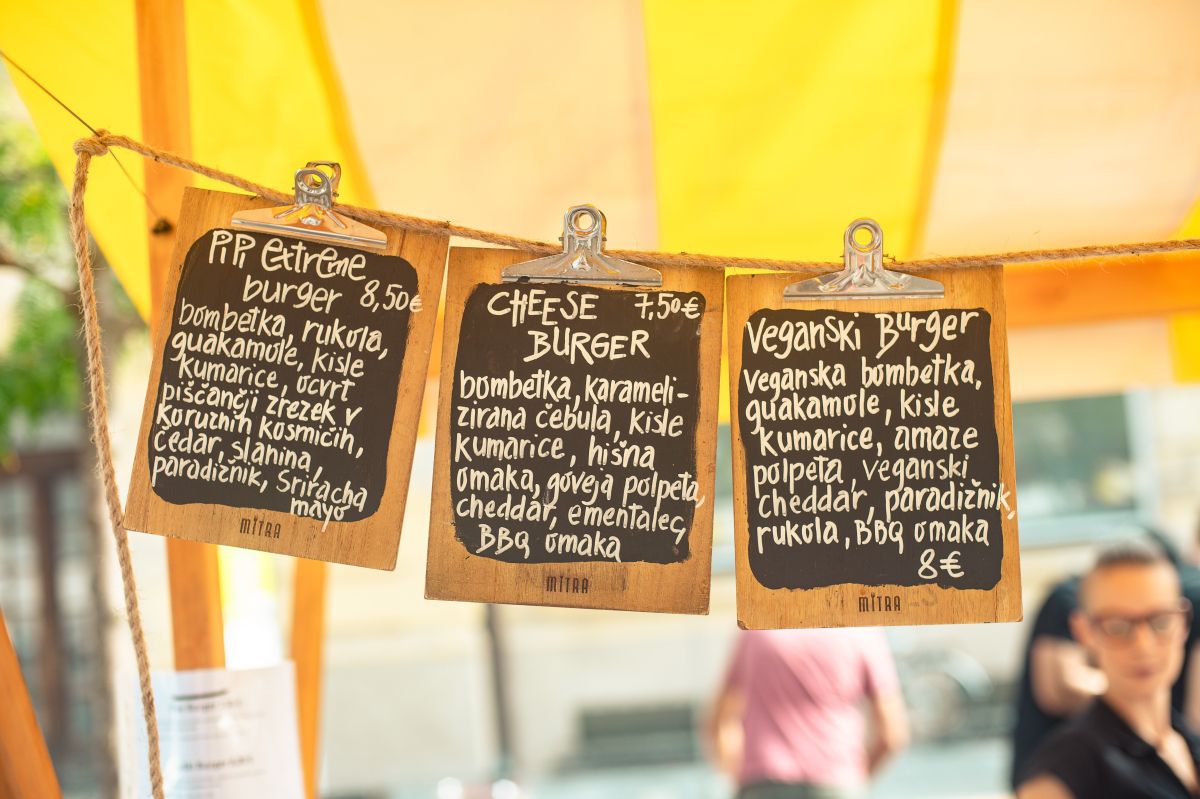 PiPi extreme
burger 8,50€
bombetka, rukola,
guakamole, kisle
kumarice, ocvrt
piščančji zrezek v
koruznih kosmičih,
čedar, slanina,
paradižnik, Sriracha
mayo
MITRA
CHEESE 7,50€
BURGER
bombetka, karameli-
zirana čebula, kisle
kumarice, hišna
omaka, goveja polpeta,
cheddar, ementalec,
BBQ omaka
MITRA
Veganski Burger
veganska bombetka,
guakamole, kisle
kumarice, amaze
polpeta, veganski
cheddar, paradižnik,
rukola, BBQ omaka
8€
MITRA